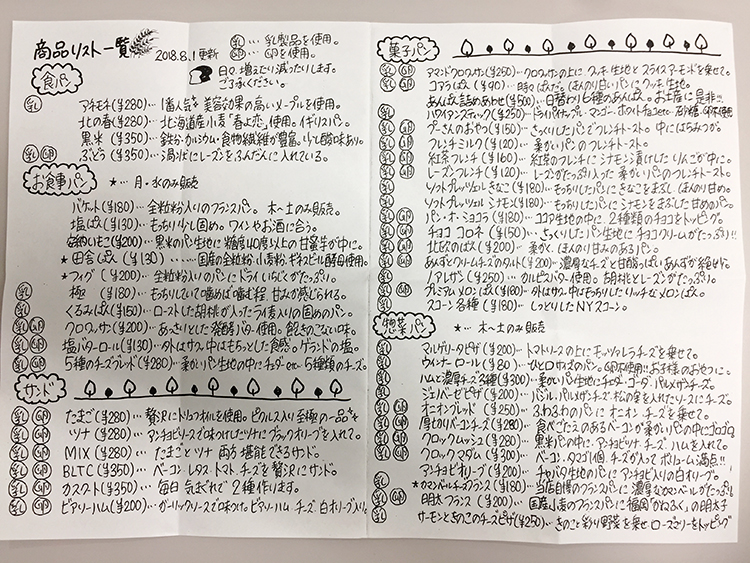 商品リスト一覧
2018.8.1更新
乳 … 乳製品を使用。
卵 … 卵を使用。
日々、増えたり減ったりします。
ご了承ください。
食パン
乳 アネモネ(¥280)… 1番人気☆ 美容効果の高いメープルを使用。
北の春(¥280)… 北海道産小麦「春よ恋」使用。イギリスパン。
黒米 (¥350)… 鉄分・カルシウム・食物繊維が豊富。少し酸味あり。
乳 卵 ぶどう (¥350)… 湯种にレーズンをふんだんに入れている。
お食事パン
★… 月・水のみ販売
バケット(¥180)… 全粒粉入りのフランスパン。木〜土のみ販売。
塩ぱん(¥130)… もっちり少し固め。ワインやお酒に合う。
安納いもこ(¥200)… 黒米のパン生地に糖度40度以上の甘蜜芋が中に。
★ 田舎ぱん (¥130) … 国産全粒粉、小麦粉、ギネスビール酵母使用。
★フィグ (¥200)… 全粒粉入りのパンにドライいちじくがたっぷり。
乳 極 (¥180)… もっちりしていて噛めば噛む程、甘みが感じられる。
乳 卵 くるみぱん(¥150)… ローストした胡桃が入ったライ麦入りの固めのパン。
乳 卵 クロワッサン(¥200)… あっさりとした発酵バター使用。飽きのこない味。
乳 卵 塩バターロール(¥130)… 外はサクッ、中はもちっとした食感。ゲランドの塩。
乳 卵 5種のチーズブレッド(¥280)… 柔かいパン生地の中にチェダーetc… 5種類のチーズ。
サンド
乳 卵 たまご(¥280)… 贅沢にトリュフオイルを使用。ピクルス入り 至極の一品☆
乳 卵 ツナ (¥280)… アンチョビソースで味つけしたツナにブラックオリーブを入れて。
乳 卵 MIX (¥280)… たまごとツナ 両方堪能できるサンド。
乳 卵 BLTC(¥350)… ベーコン レタス トマト チーズを贅沢にサンド。
乳 卵 カスクート(¥350)… 毎日 気まぐれで 2種作ります。
乳 卵 ビアリーハム(¥200)… ガーリックソースで味つけ。ビアリーハム、チーズ、白オリーブ入り。
菓子パン
乳 卵 アマンドクロワッサン(¥250)… クロワッサンの上に クッキー生地と スライスアーモンドを乗せて。
乳 卵 コアラぱん(¥90)… 時々ぱんだ。ほんのり甘いパンにクッキー生地。
あんぱん詰めあわせ(¥500)… 日替わり6種のあんぱん。お土産に是非!!
ハワイアンスティック(¥250)… ドライパイナップル・マンゴー・ホワイトチョコetc…
乳 卵 プーさんのおやつ(¥150)… さっくりしたパンでフレンチトースト。中にはちみつが。
乳 卵 フレンチミルク(¥120)… 柔かいパンのフレンチトースト。
乳 卵 紅茶フレンチ(¥160)… 紅茶のフレンチにシナモン漬けしたりんごが中に。
乳 卵 レーズンフレンチ(¥120)… レーズンがたっぷり入った柔かいパンのフレンチトースト。
乳 ソフトプレッツェル きなこ(¥180)… もっちりしたパンにきなこをまぶしほんのり甘め。
乳 ソフトプレッツェル シナモン(¥180)… もっちりしたパンにシナモンをまぶした甘めのパン。
乳 卵 パン・オ・ショコラ(¥180)… ココア生地の中に2種類のチョコをトッピング。
乳 卵 チョココロネ(¥150)… さっくりしたパン生地にチョコクリームがたっぷり!!
乳 卵 北欧のぱん(¥200)… 柔かく、ほんのり甘みのあるパン。
乳 卵 あんずとクリームチーズのタルト(¥200)… 濃厚なチーズと甘酸っぱいあんずが絶妙!!
乳 ノアレザン(¥250)… カルピスバター使用。胡桃とレーズンがたっぷり。
乳 卵 プレミアムメロンぱん(¥160)… 外はサクッ、中はもっちりしたリッチなメロンぱん。
乳 スコーン各種(¥180)… しっとりしたNYスコーン。
惣菜パン
★… 木〜土のみ販売
乳 マルゲリータピザ(¥200)… トマトソースの上にモッツァレラチーズを乗せて。
乳 ウィンナーロール(¥80)… ひと口サイズのパン。卵不使用!! お子様のおやつに。
乳 ハムと濃厚チーズ3種(¥300)… 柔かいパン生地にチェダー・ゴーダ・パルメザンチーズ。
乳 ジェノベーゼピザ(¥200)… バジル・パルメザンチーズ・松の実を入れたソースにチーズ。
乳 卵 オニオンブレッド(¥250)… ふわふわのパンに オニオン チーズを乗せて。
乳 卵 厚切りベーコンチーズ(¥280)… 食べごたえのあるベーコンが柔かいパンの中にゴロゴロ。
乳 卵 クロックムッシュ(¥280)… 黒米パンの中に、アンチョビツナ、チーズ、ハムを入れて。
乳 卵 クロックマダム(¥300)… ベーコン、タマゴ1個、チーズが入ってボリューム満点!!
アンチョビオリーブ(¥200)… チャバタ生地のパンにアンチョビ入りの白オリーブ。
乳 ★カマンベールチーズフランス(¥180)… 当店自慢のフランスパンに濃厚なカマンベールがたっぷり。
乳 卵 明太フランス(¥200)… 国産小麦のフランスパンに福岡「かねふく」の明太子
乳 サーモンときのこのチーズピザ(¥250)… きのこと彩り野菜を乗せ ローズマリーをトッピング